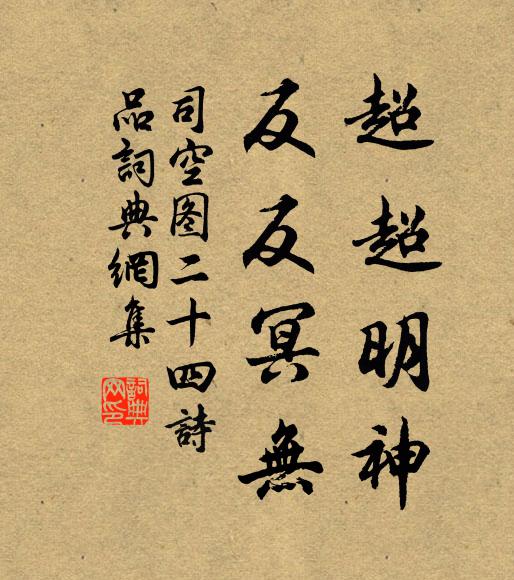 超超明神
反反冥無
司空图二十四詩
品詞典網集
詞典
网印